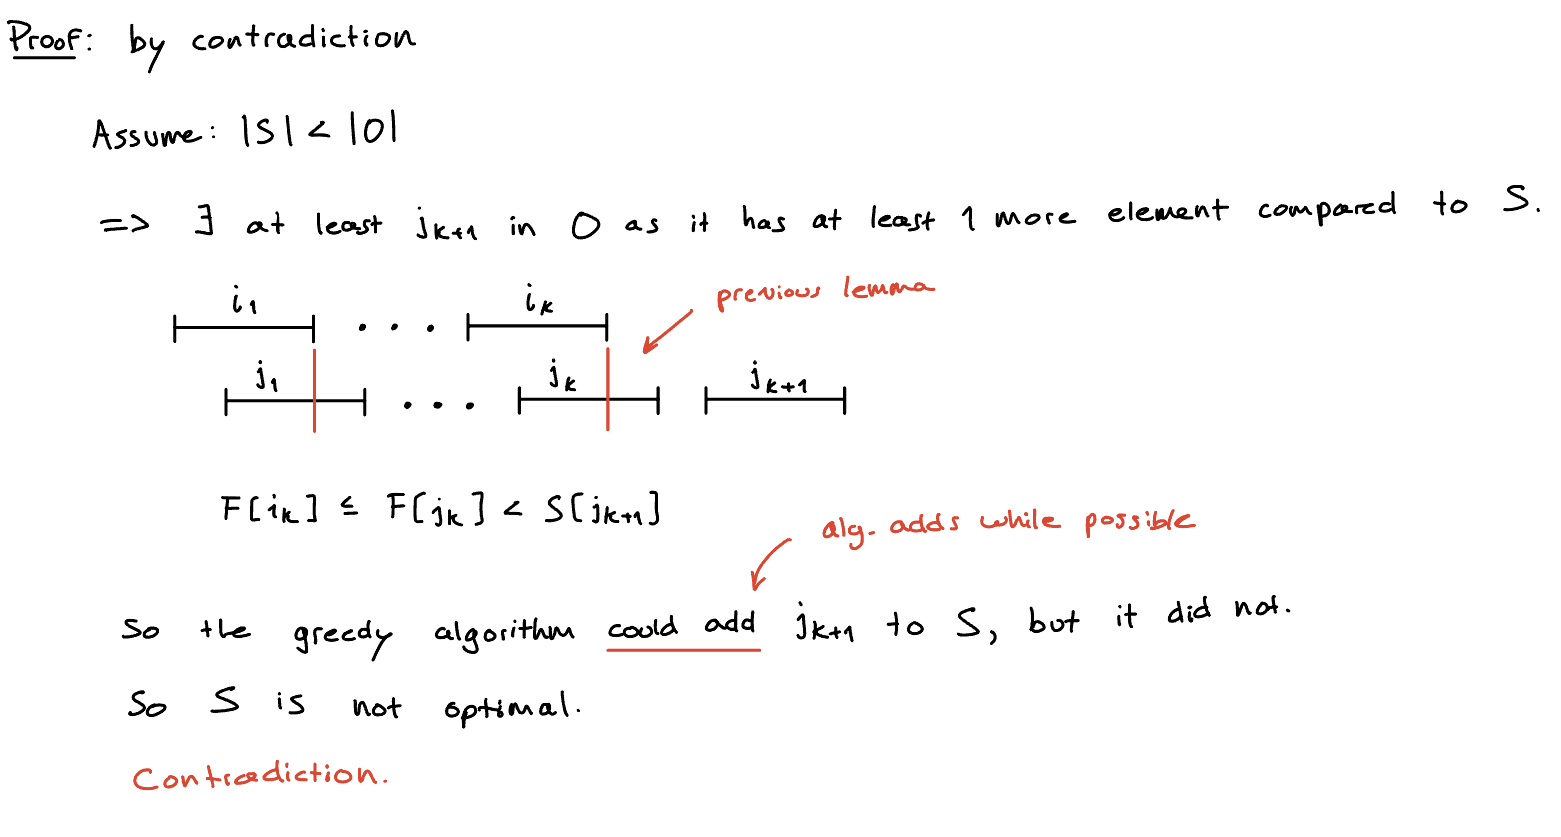 Proof: by contradiction
Assume: |S| < |O|
=> ∃ at least jₖ₊₁ in O as it has at least 1 more element compared to S.
i₁ ... iₖ
previous lemma
j₁ ... jₖ jₖ₊₁
F[iₖ] ≤ F[jₖ] < S[jₖ₊₁]
alg. adds while possible
So the greedy algorithm could add jₖ₊₁ to S, but it did not.
So S is not optimal.
Contradiction.